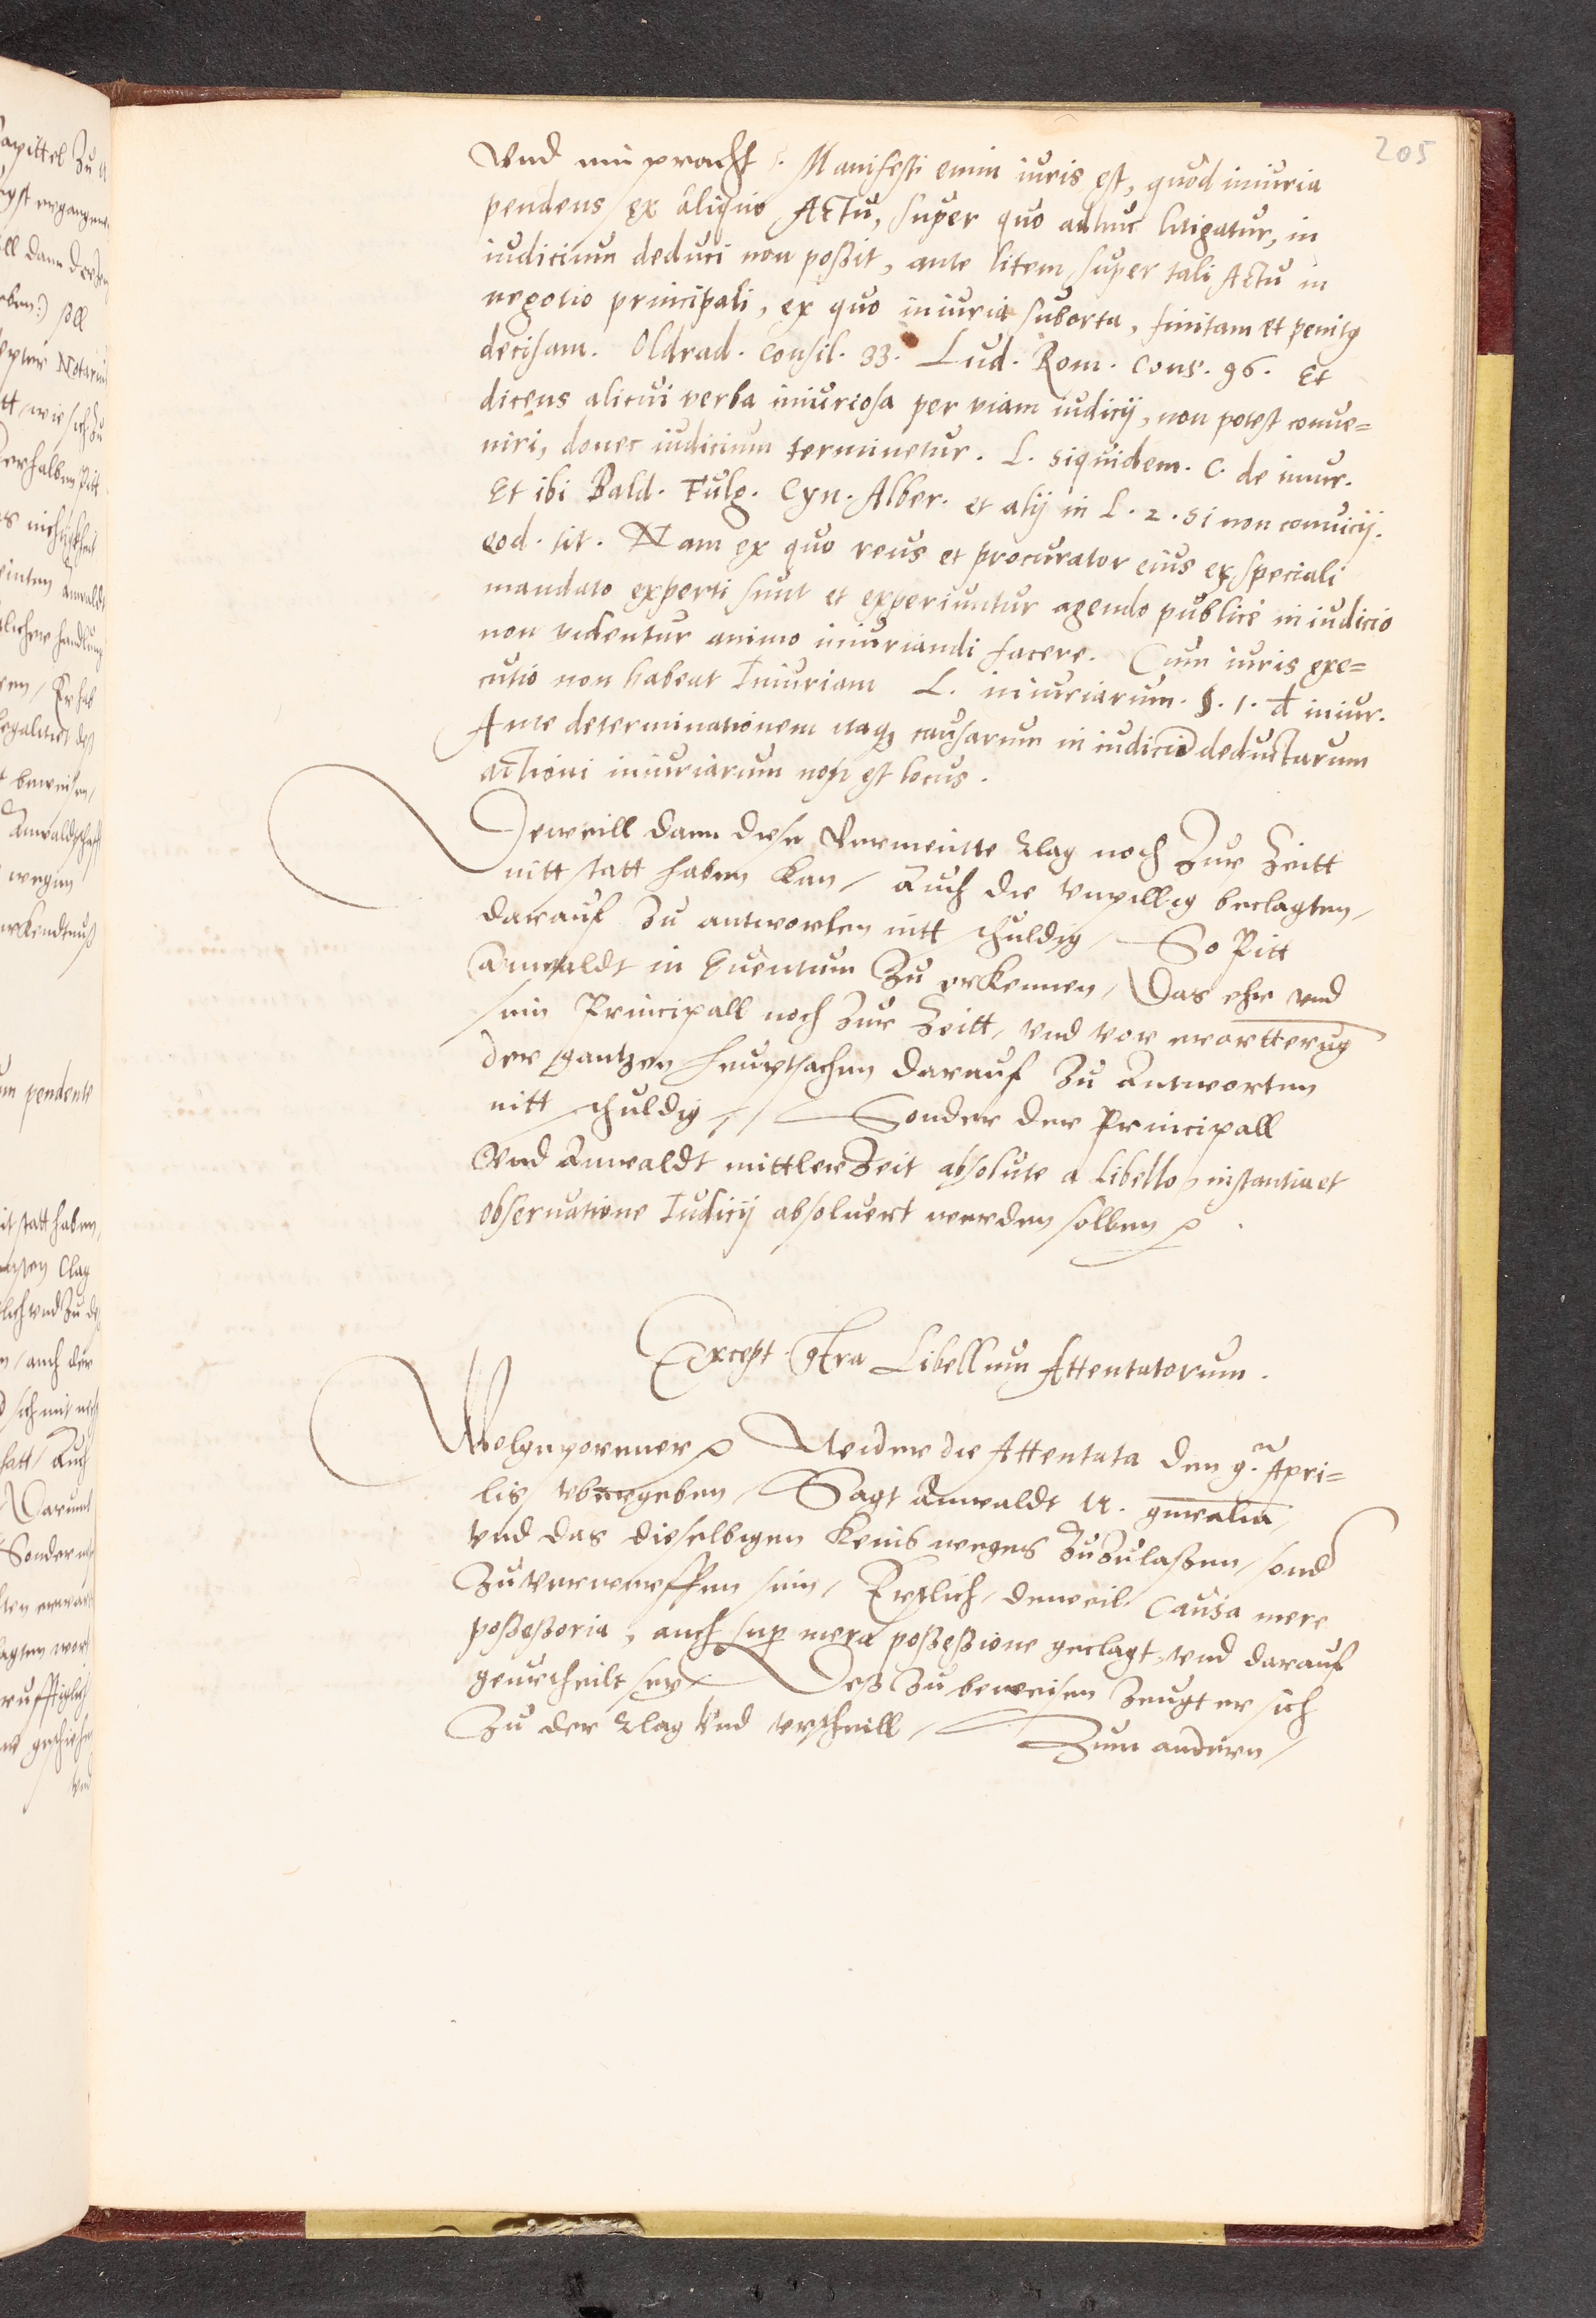 205
Vnd ein pracht. Manifesti enim iuris est, quod iniuria
pendens ex aliquo Actu, super quo adhuc litigatur, in
iudicium deduci non poßit, ante litem super tali Actu in
negotio principali, ex quo iniuria suborta, finitam et penitg
decisam. Oldrad. Consil. 33. Lud. Rom. Cons. 96. Et
dicens alicui verba iniuriosa per viam iudicij, non potest conue=
niri, donec iudicium terminetur. L. siquidem. C. de iniur.
Et ibi Bald. Fulg. Cyn. Alber. et alij in L. 2. Si non conuicij.
eod. tit. Nam ex quo reus et procurator eius ex speciali
mandato experti sunt et experiuntur agendo publice in iudicio
non videntur animo iniuriandi facere. Cum iuris exe=
cutio non habeat Iniuriam L. iniuriarum. §. 1. d iniur.
Ante determinationem itaq causarum in iudicio deductarum
actioni iniuriarum non est locus.
Dweill dann diese Vermeinte Clag noch Zur Zeitt
nitt statt haben kan / Auch die vnpillig beclagten,
darauf Zu antworten nitt schuldig / So Pitt
Anwaldt in Euentum Zu erkennen / Das ehr vnd
sein Principall noch Zur Zeitt, vnd vor erörtterug
der gantzen hauptsachen darauf Zu Antworten
nitt schuldig, / Sonder der Principall
Vnd Anwaldt mittler Zeit absolute a libello, instantia et
obseruatione Iudicij absoluert werden sollen
Except. Ctra Libellum Attentatorum.
Wolgeporner Weider die Attentata den 9. Apri=
lis vbergeben, Sagt Anwaldt N. generalia,
vnd das dieselbigen Keins weges ZuZulaßen, sond
Zu verwerffen sein, Erstlich, dweil Causa mere
poßeßoria, auch sup mera poßeßione geclagt, vnd darauf
geurtheilt sey Deß Zu beweisen Zeugt er sich
Zu der Clag Vnd vrtheill, Zum andern,